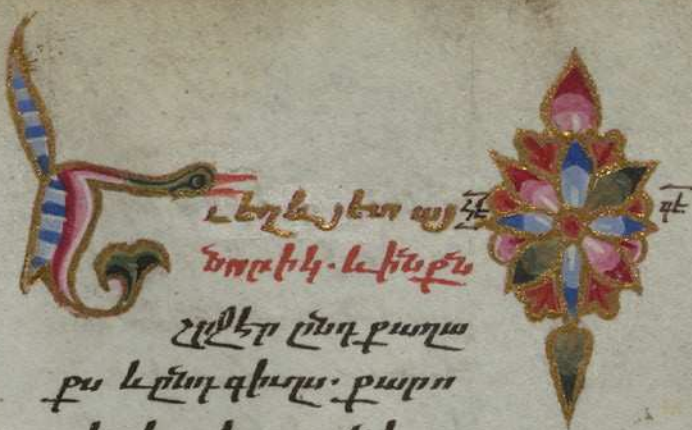 Եւ եղև յետ այ
նորիկ. և ինքն
շրջէր ընդ քաղա
քս և ընդ գիւղս. քարո